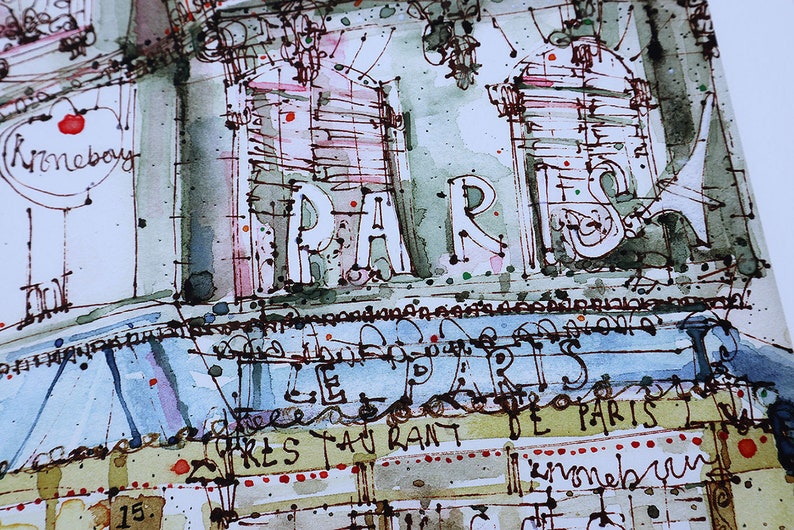 Kronebouy
PARIS
LE PARIS
RESTAURANT DE PARIS
Kronebouy
15.